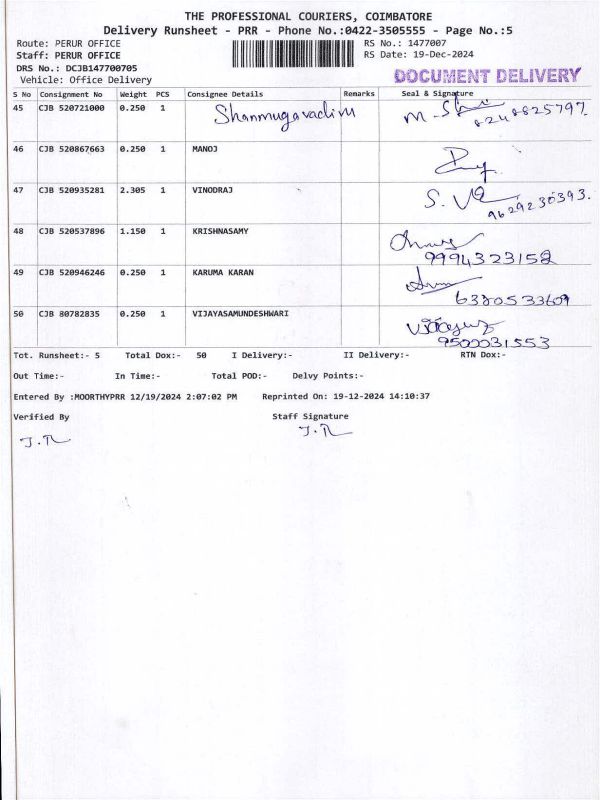 THE PROFESSIONAL COURIERS, COIMBATORE
Delivery Runsheet - PRR - Phone No.:0422-3505555 - Page No.:5
Route: PERUR OFFICE RS No.: 1477007
Staff: PERUR OFFICE RS Date: 19-Dec-2024
DRS No.: DCJB147700705
Vehicle: Office Delivery DOCUMENT DELIVERY
S No Consignment No Weight PCS Consignee Details Remarks Seal & Signature
45 CJB 520721000 0.250 1 Shanmugavadivu M.
8248825797
46 CJB 520867663 0.250 1 MANOJ
47 CJB 520935281 2.305 1 VINODRAJ S.
9629230393.
48 CJB 520537896 1.150 1 KRISHNASAMY
9994323152
49 CJB 520946246 0.250 1 KARUMA KARAN
6380533609
50 CJB 80782835 0.250 1 VIJAYASAMUNDESHWARI
9500031553
Tot. Runsheet:- 5 Total Dox:- 50 I Delivery:- II Delivery:- RTN Dox:-
Out Time:- In Time:- Total POD:- Delvy Points:-
Entered By :MOORTHYPRR 12/19/2024 2:07:02 PM Reprinted On: 19-12-2024 14:10:37
Verified By Staff Signature